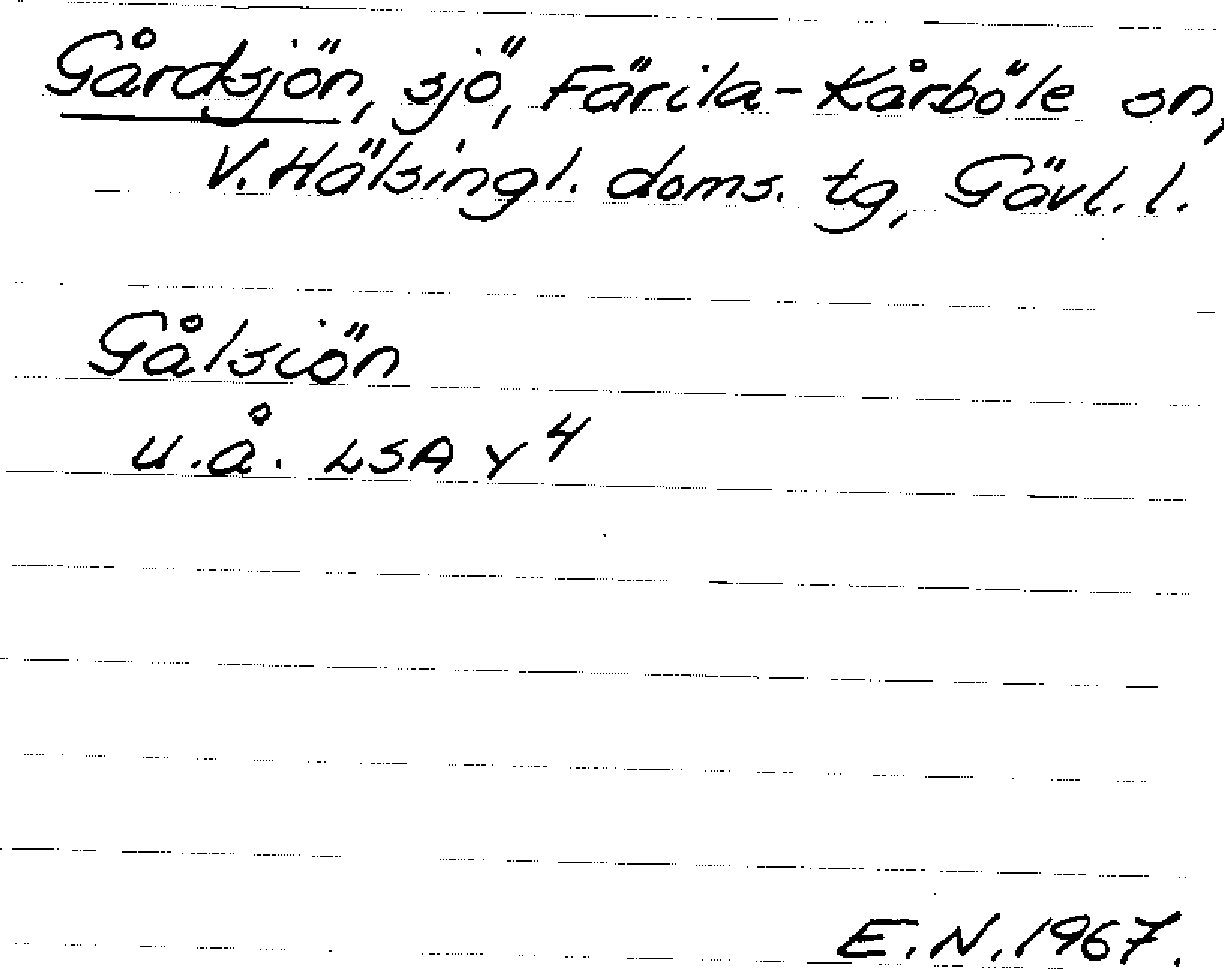 Gårdsjön, sjö, Färila-Kårböle sn,
V. Hälsingl. doms. tg, Gävl. l.
Gålsiön
u.å. LSA Y 4
E.N. 1967.